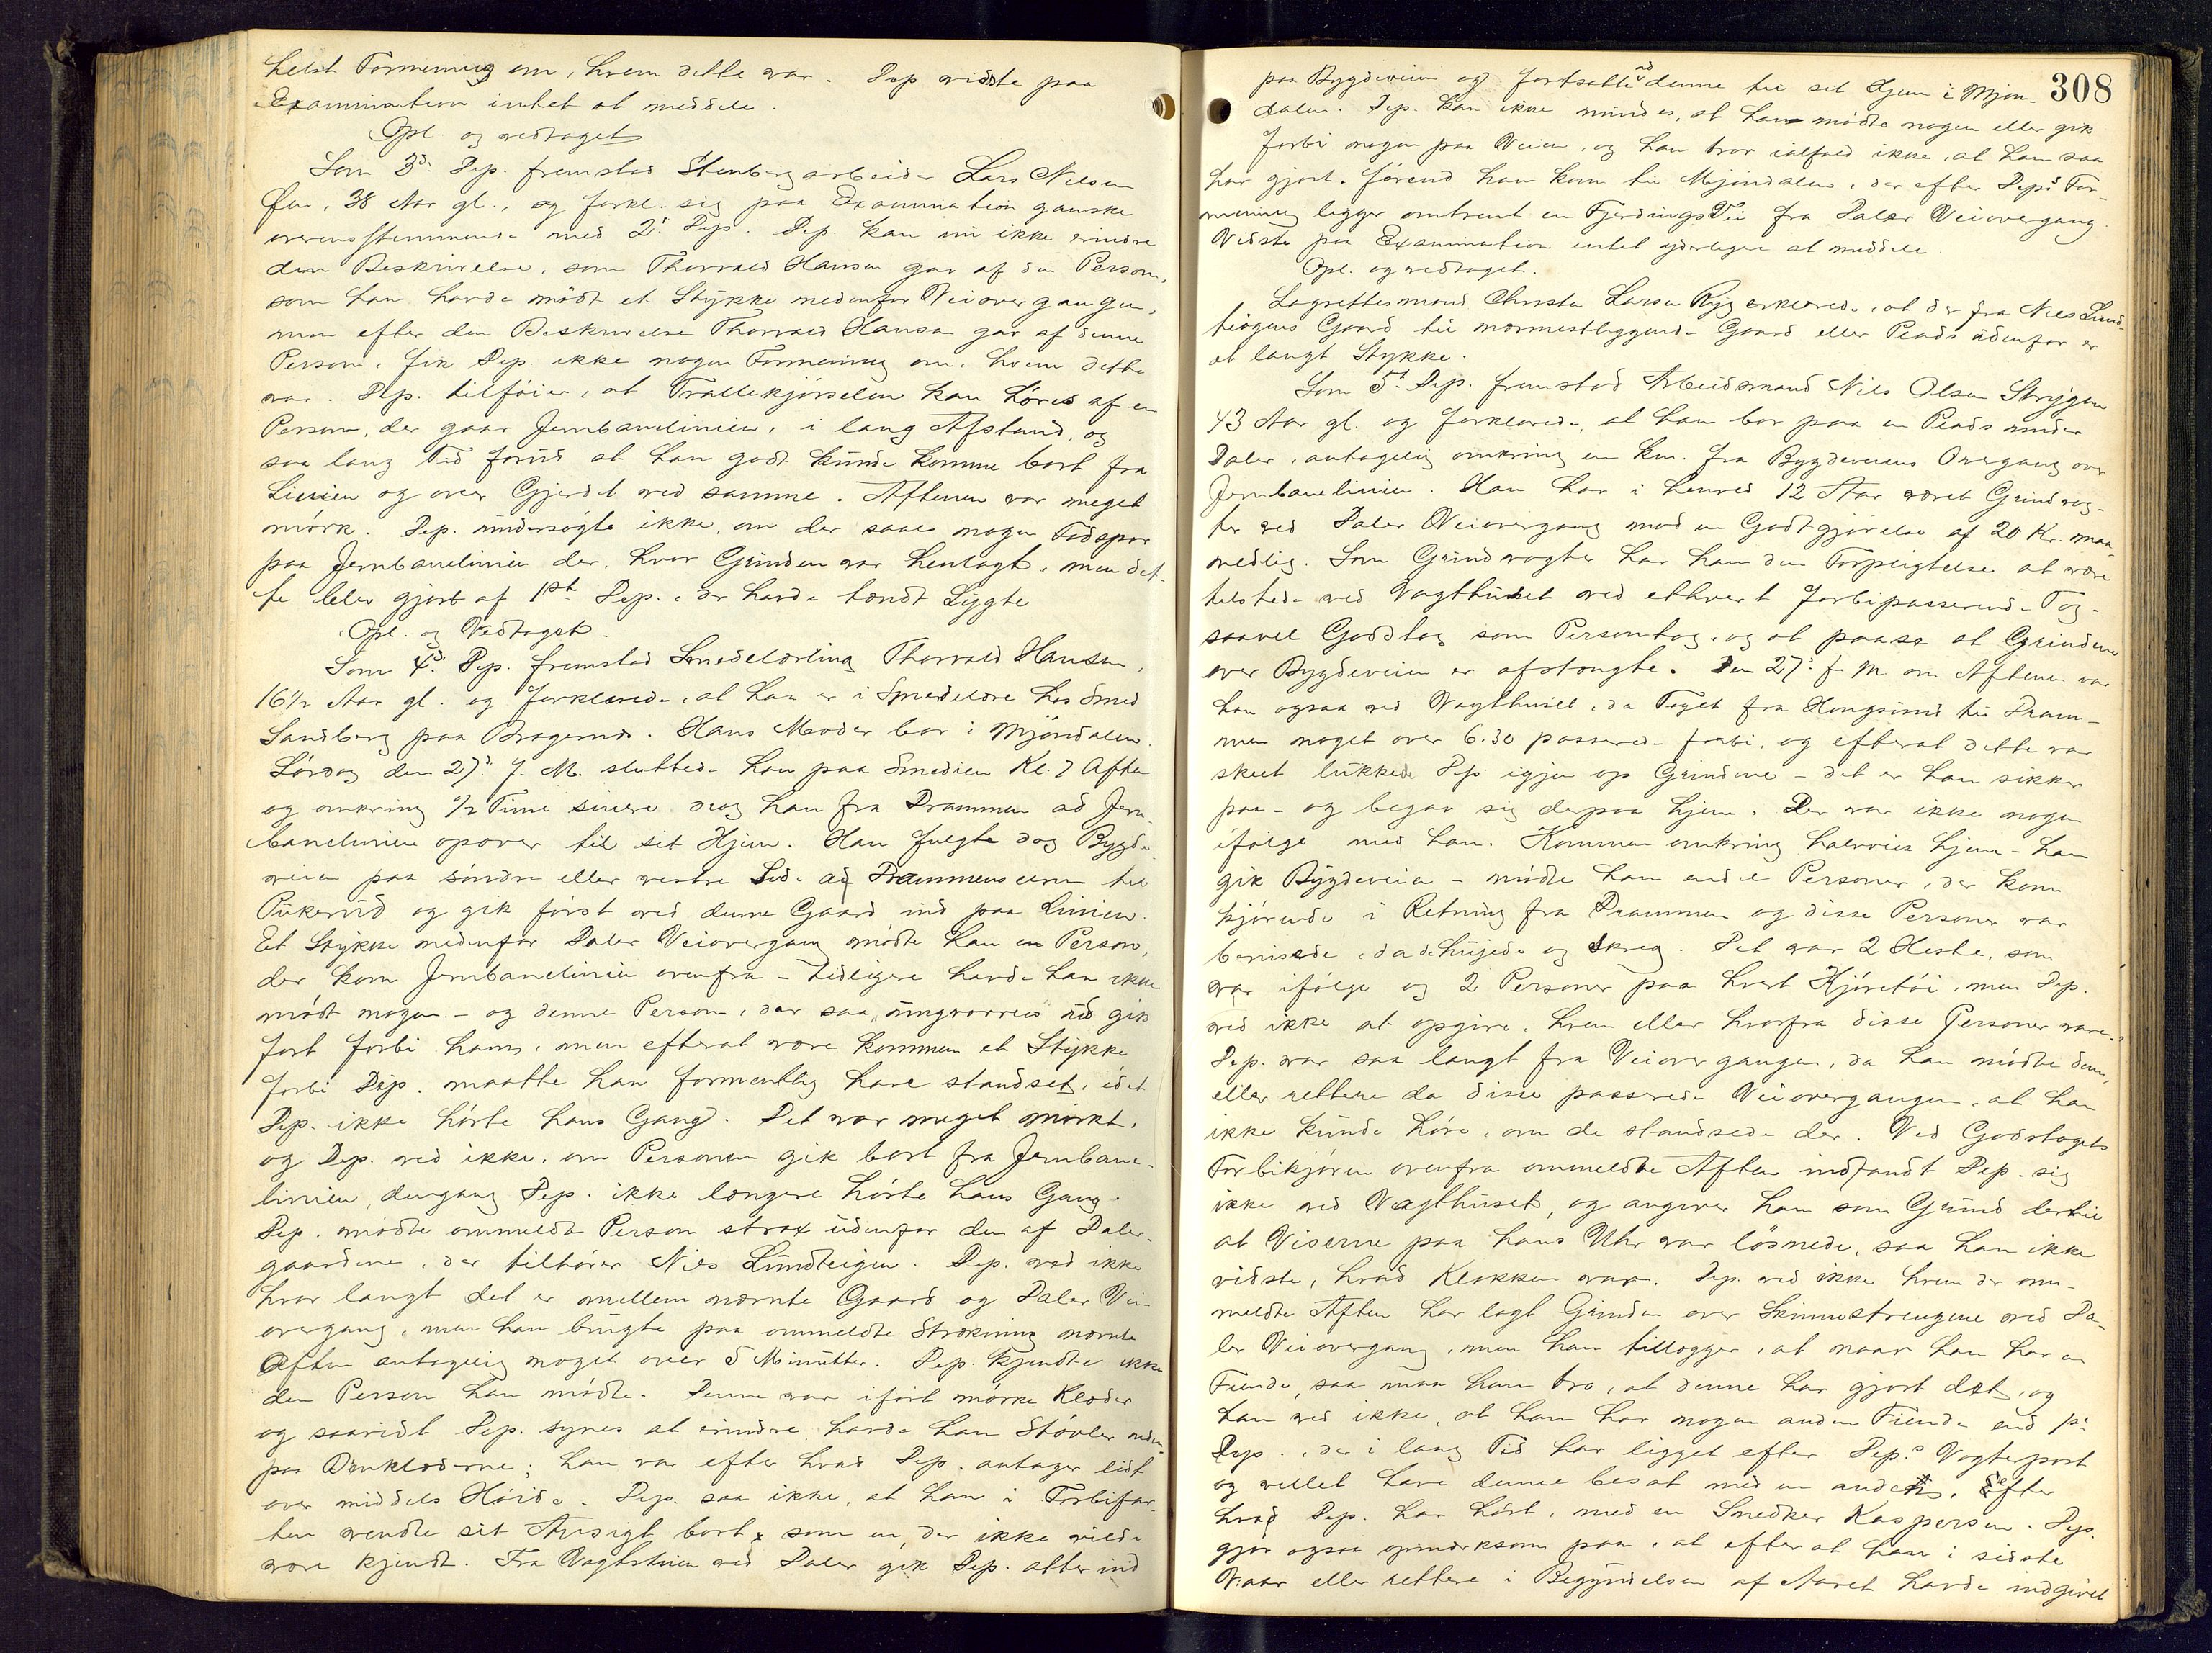 helst Formening om, hvem dette var. Dep vidste paa
Examination intet at meddele.
Opl. og vedtaget
Som 3d: Dep. fremstod Stenbergarbeider Lars Nilsen
38 Aar gl., og forkl. sig paa Examination ganske
overensstemmende med 2: Dep. Dep. kan nu ikke erindre
den Beskrivelse, som Thorvald Hansen gav af den Person,
som han havde mødt et Stykke nedenfor Veiovergangen,
men efter den Beskrivelse Thorvald Hansen gav af denne
Person, fik Dep. ikke nogen Formening om, hvem dette
var. Dep. tilføier, at Trallekjørselen kan høres af en
Person, der gaar Jernbanelinien, i lang Afstand, og
saa lang Tid forud at han godt kunde komme bort fra
Linien og over Gjerdet ved samme. Aftenen var meget
mørk. Dep. undersøgte ikke, om der saaes nogen Fodspor
paa Jernbanelinien der, hvor Grinden var henlagt, men det-
te blev gjort af 1st Dep., der havde tændt Lygte
Opl. og Vedtaget.
Som 4d: Dep. fremstod Smedelærling Thorvald Hansen,
16½ Aar gl. og forklarede, at han er i Smedelære hos Smed
Sandberg paa Bragernes. Hans Moder bor i Mjøndalen.
Lørdag den 27: f. M. sluttede han paa Smedien Kl. 7 Aften
og omkring ½ Time senere drog han fra Drammen ad Jern-
banelinien opover til sit Hjem. Han fulgte dog Bygde-
veien paa søndre eller vestre Side af Drammenselven til
Pukerud og gik først ved denne Gaard ind paa Linien.
Et Stykke nedenfor Daler Veiovergang mødte han en Person,
der kom Jernbanelinien ovenfra - tidligere havde han ikke
mødt nogen - og denne Person, der saa ungvorren ud gik
fort forbi ham, men efterat være kommen et Stykke
forbi Dep. maatte han formentlig have standset, idet
Dep. ikke hørte hans Gang. Det var meget mørkt,
og Dep. ved ikke, om Personen gik bort fra Jernbane-
linien, dengang Dep. ikke længere hørte hans Gang.
Dep. mødte ommeldte Person strax udenfor den af Daler-
gaardene, der tilhører Nils Lundteigen. Dep. ved ikke
hvor langt det er mellem nævnte Gaard og Daler Vei-
overgang, men han brugte paa ommeldte Strækning nævnte
Aften antagelig noget over 5 Minutter. Dep. kjendte ikke
den Person han mødte. Denne var iført mørke Klæder
og saavidt Dep. synes at erindre havde han Støvler uden-
paa Benklæderne; han var efter hvad Dep. antager lidt
over middels Høide. Dep. saa ikke, at han i Forbifar-
ten vendte sit Ansigt bort, som en, der ikke vilde
være kjendt. Fra Vagtstuen ved Daler gik Dep. atter ind
308
paa Bygdeveien og fortsatte ad denne til sit Hjem i Mjøn-
dalen. Dep. kan ikke mindes, at han mødte nogen eller gik
forbi nogen paa Veien, og han tror ialfald ikke, at han saa
har gjort, førend han kom til Mjøndalen, der efter Deps For-
mening ligger omtrent en Fjerdings Vei fra Daler Veiovergang.
Vidste paa Examination intet yderligere at meddele.
Opl. og vedtaget.
Lagrettesmand Christen Larsen Ryg erklærede, at der fra Nils Lund-
teigens Gaard til nærmestliggende Gaard eller Plads udenfor er
et langt Stykke.
Som 5t Dep. fremstod Arbeidsmand Nils Olsen Strygen
43 Aar gl. og forklarede, at han bor paa en Plads under
Daler, antagelig omkring en km. fra Bygdeveiens Overgang over
Jernbanelinien. Han har i henved 12 Aar været Grindvog-
ter ved Daler Veiovergang mod en Godtgjørelse af 20 Kr. maa-
nedlig. Som Grindvogter har han den Forpligtelse at være
tilstede ved Vagthuset ved ethvert forbipasserende Tog,
saavel Godstog som Persontog, og at paase at Grindene
over Bygdeveien er afstængte. Den 27: f. M. om Aftenen var
han ogsaa ved Vagthuset, da Toget fra Hougsund til Dram-
men noget over 6.30 passerede forbi, og efterat dette var
skeet lukkede Dep. igjen op Grindene - det er han sikker
paa - og begav sig derpaa hjem. Der var ikke nogen
ifølge med ham. Kommen omkring halvveis hjem - han
gik Bygdeveien - mødte han endel Personer, der kom
kjørende i Retning fra Drammen og disse Personer var
berusede, da de hujede og skreg. Det var 2 Heste, som
var ifølge og 2 Personer paa hvert Kjøretøi, men Dep.
ved ikke at opgive, hvem eller hvorfra disse Personer vare.
Dep. var saa langt fra Veiovergangen, da han mødte dem,
eller rettere da disse passerede Veiovergangen, at han
ikke kunde høre, om de standsede der. Ved Godstogets
Forbikjøren ovenfra ommeldte Aften indfandt Dep. sig
ikke ved Vagthuset, og angiver han som Grund dertil
at Viserne paa hans Uhr var løsnede, saa han ikke
vidste, hvad Klokken var. Dep. ved ikke hvem der om-
meldte Aften har lagt Grinden over Skinnestrengene ved Da-
ler Veiovergang, men han tillægger, at naar han har en
Fiende, saa maa han tro, at denne har gjort det, og
han ved ikke, at han har nogen anden Fiende end 1st
Dep., der i lang Tid har ligget efter Deps Vogterpost
og villet have denne besat med en anden, efter
hvad Dep. har hørt, med en Snedker Kaspersen. Dep.
gjør ogsaa opmærksom paa, at efterat han i sidste
Vaar eller rettere i Begyndelsen af Aaret havde indgivet